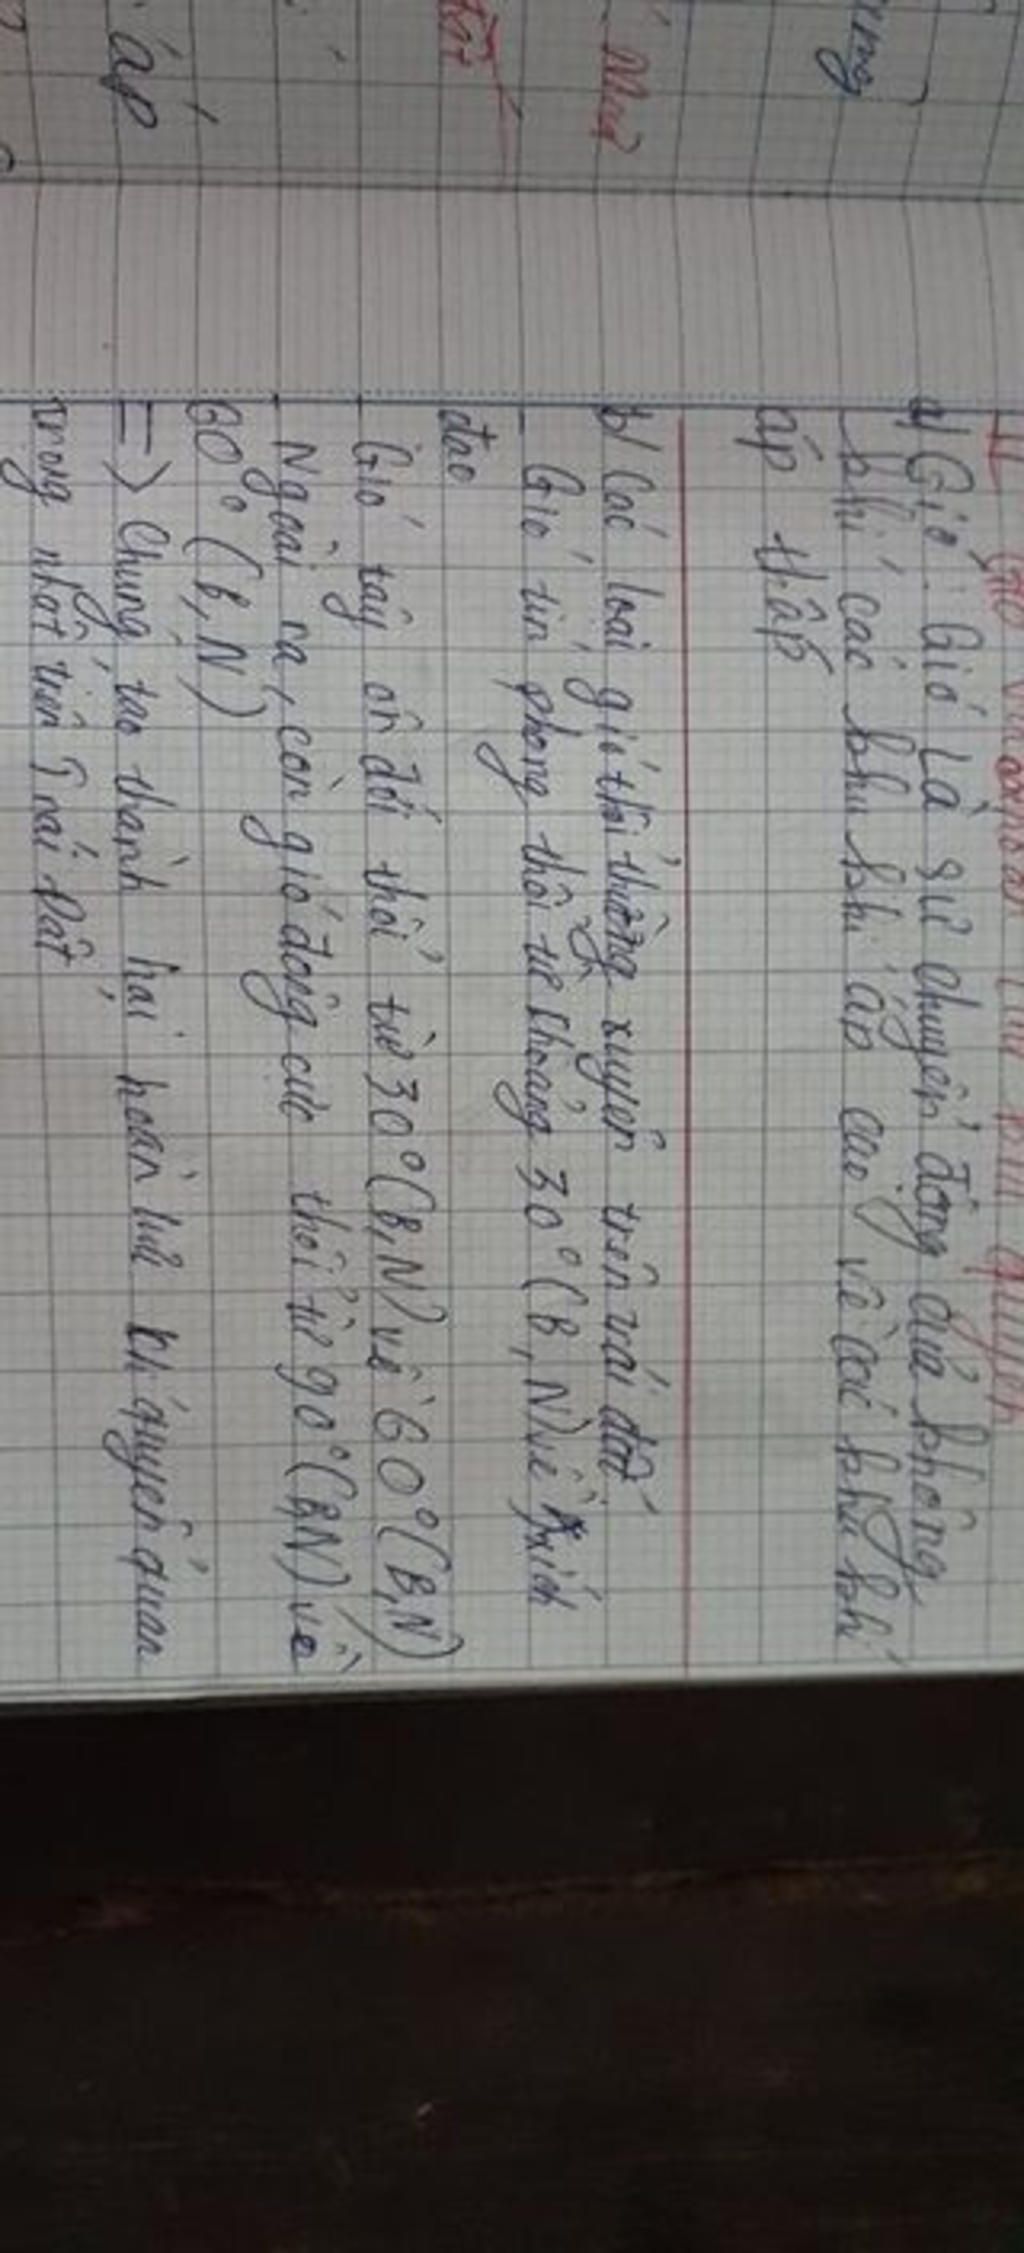 áp
Mưa
II. Gió và hoàn lưu khí quyển
a) Gió: Gió là sự chuyển động của không
khí các khu khí áp cao về các khu khí
áp thấp
b) Các loại gió thổi thường xuyên trên trái đất
- Gió tín phong thổi từ khoảng 30° (B, N) về xích
đạo
- Gió tây ôn đới thổi từ 30° (B,N) về 60° (B,N)
- Ngoài ra, còn gió đông cực thổi từ 90° (B,N) về
60° (B,N)
=> Chúng tạo thành hai hoàn lưu khí quyển quan
trọng nhất trên Trái Đất